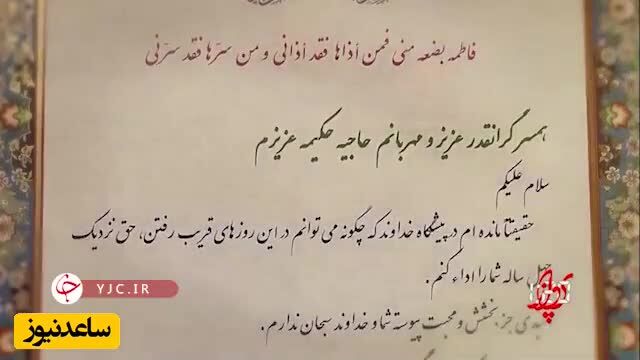 فاطمه بضعه منی فمن أذاها فقد أذانی و من سرّها فقد سرّنی
همسر گرانقدر عزیز و مهربانم حاجیه حکیمه عزیزم
سلام علیکم
حقیقتاً مانده ام در پیشگاه خداوند که چگونه می توانم در این روزهای قریب رفتن، حق نزدیک
چهل ساله شما را اداء کنم.
جز بخشش و محبت پیوسته شما و خداوند سبحان ندارم.
YJC.IR
ساعدنیوز